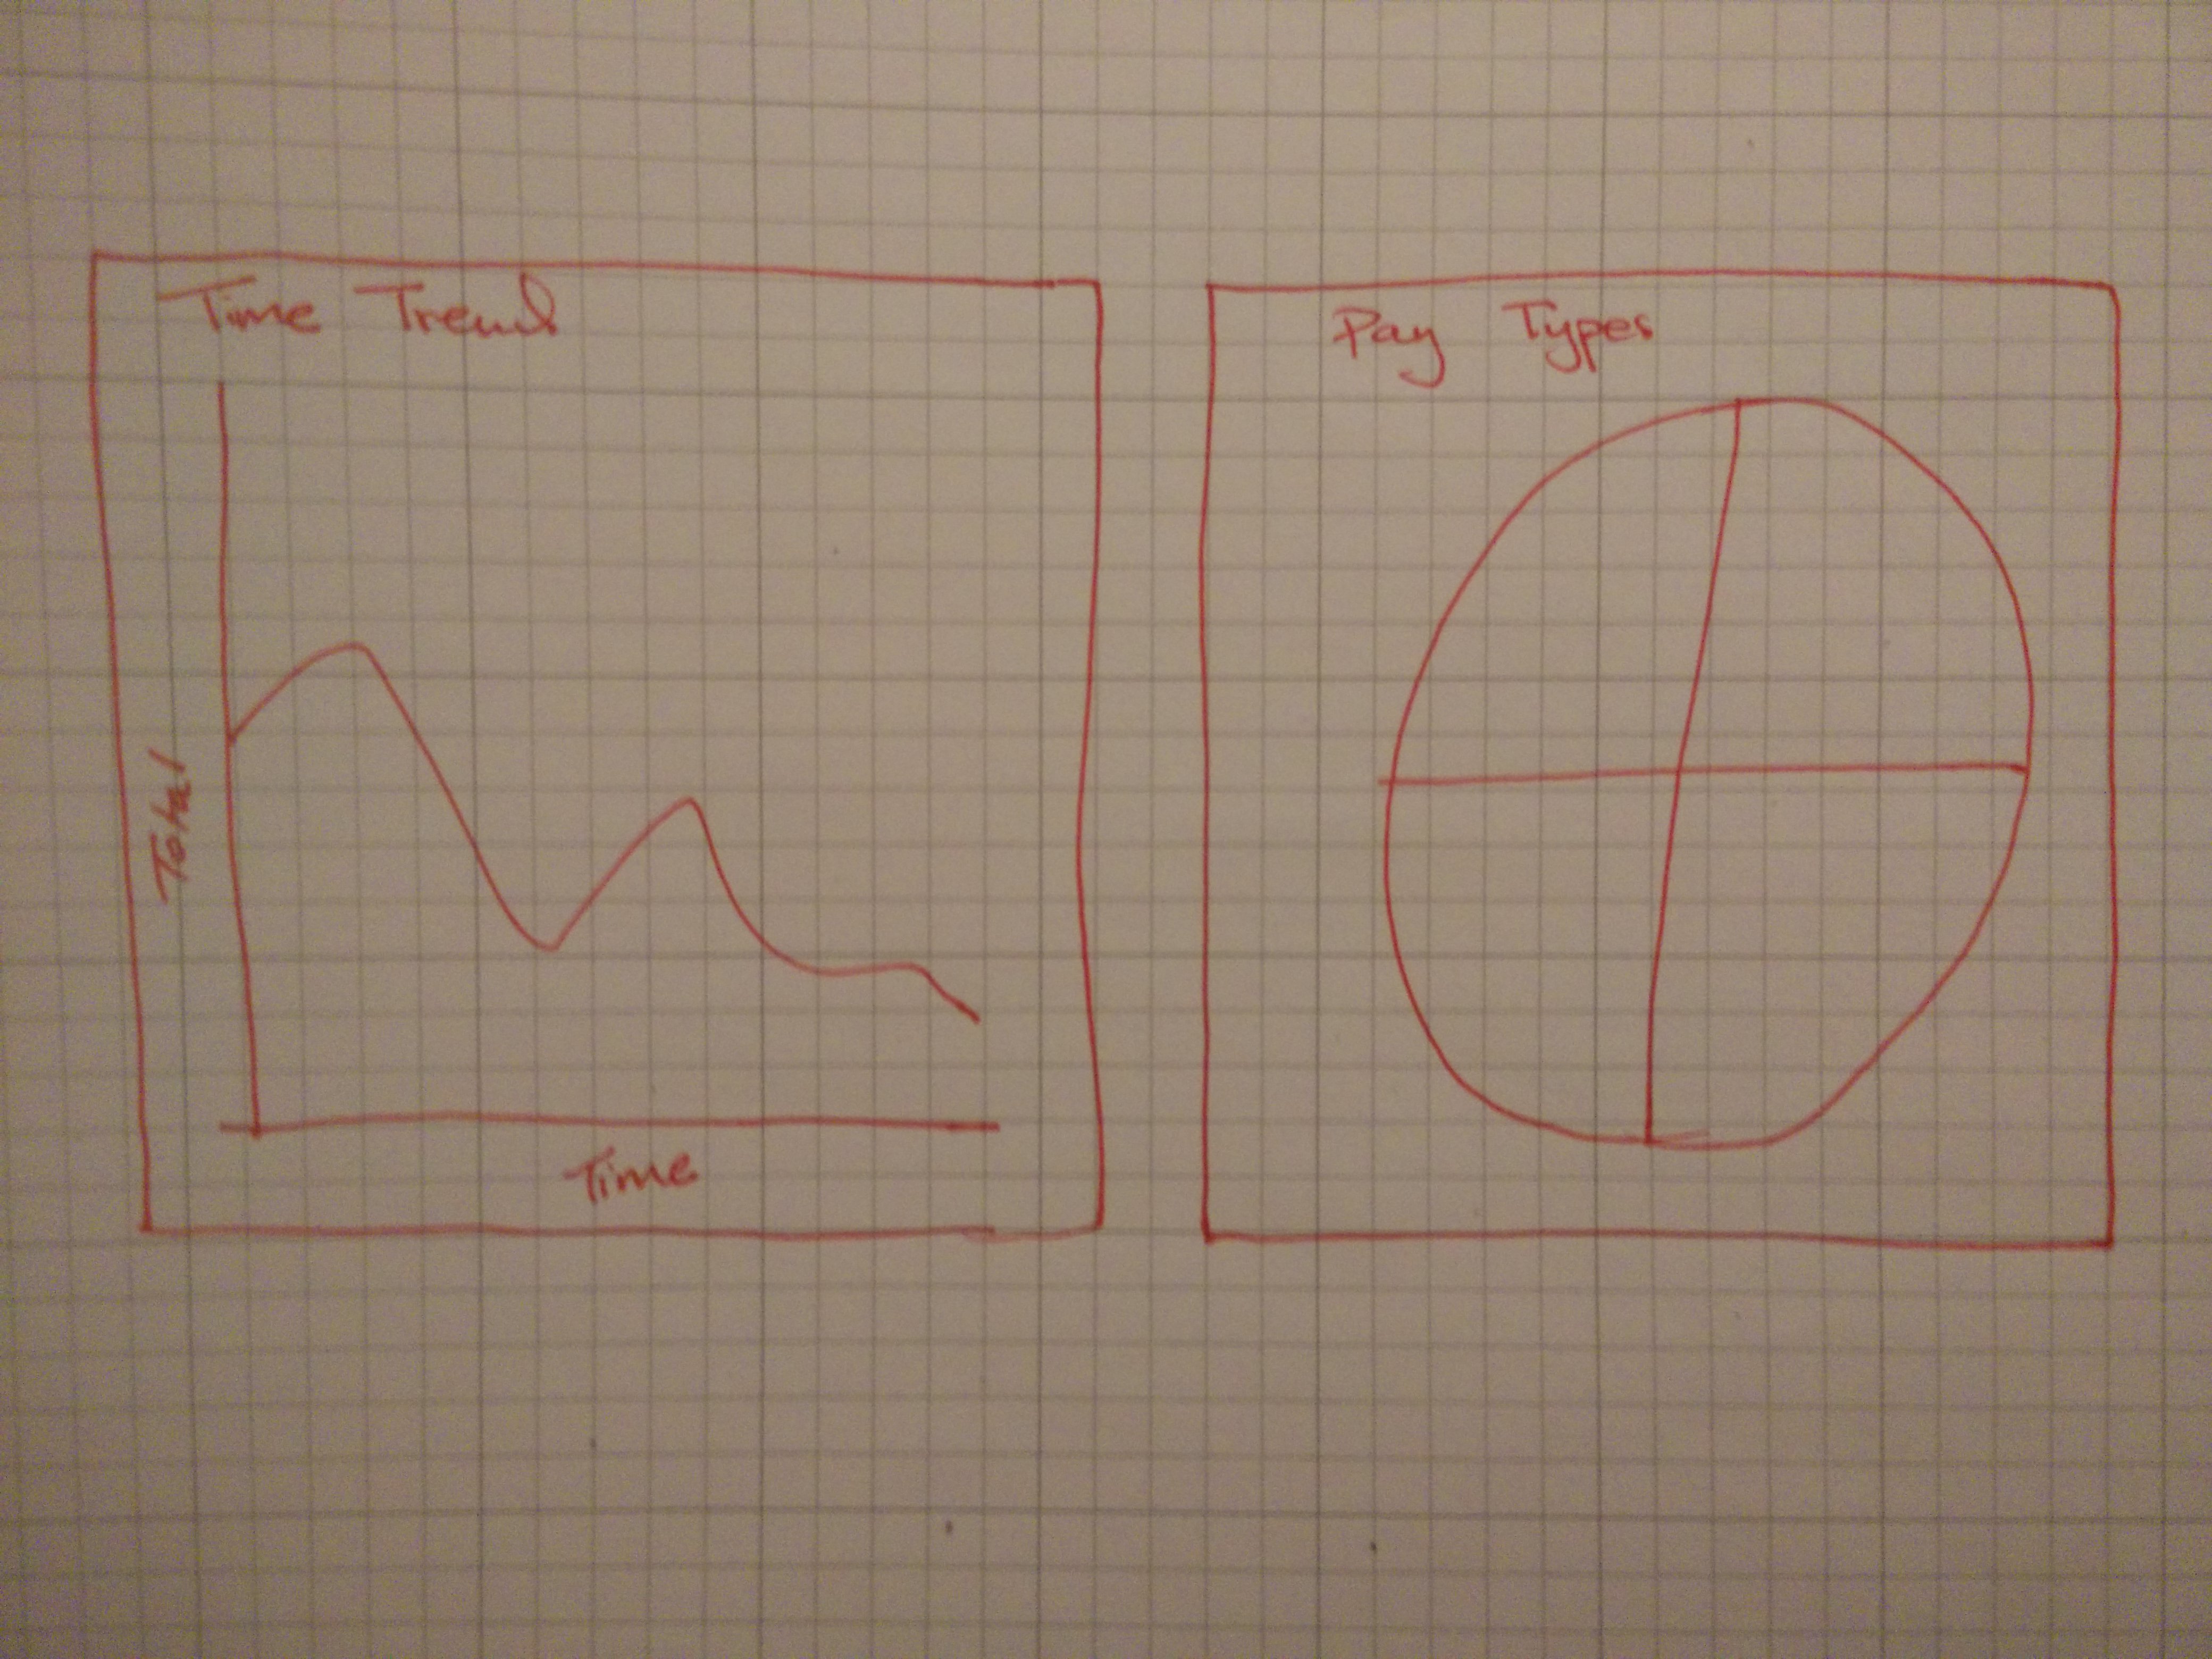 Time Trend
Total
Time
Pay Types